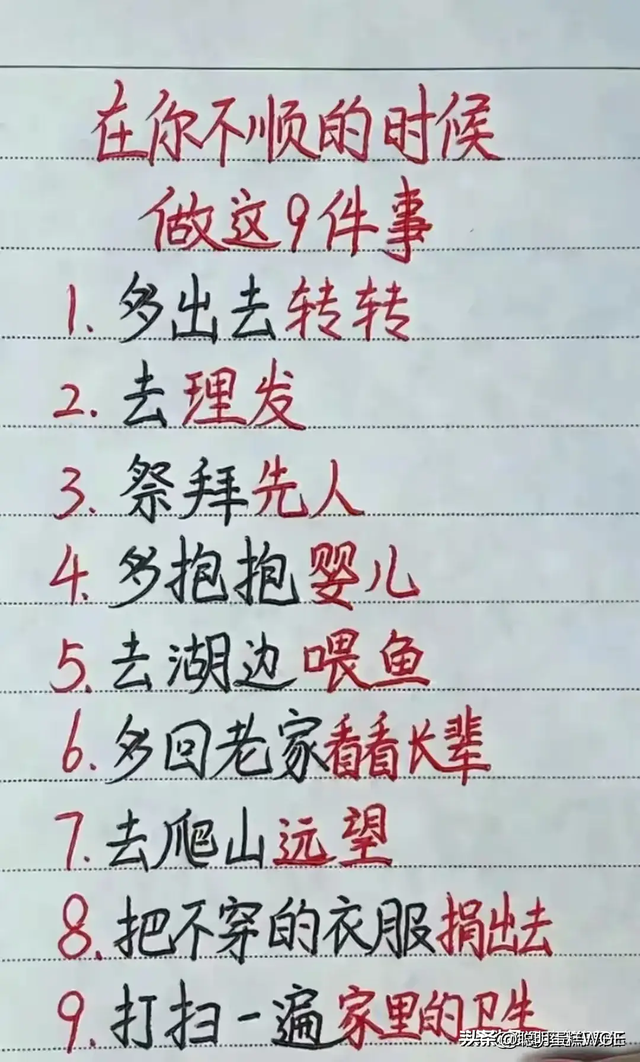 在你不顺的时候
做这9件事
1. 多出去转转
2. 去理发
3. 祭拜先人
4. 多抱抱婴儿
5. 去湖边喂鱼
6. 多回老家看看长辈
7. 去爬山远望
8. 把不穿的衣服捐出去
9. 打扫一遍家里的卫生
头条 @聪明蛋糕WGE